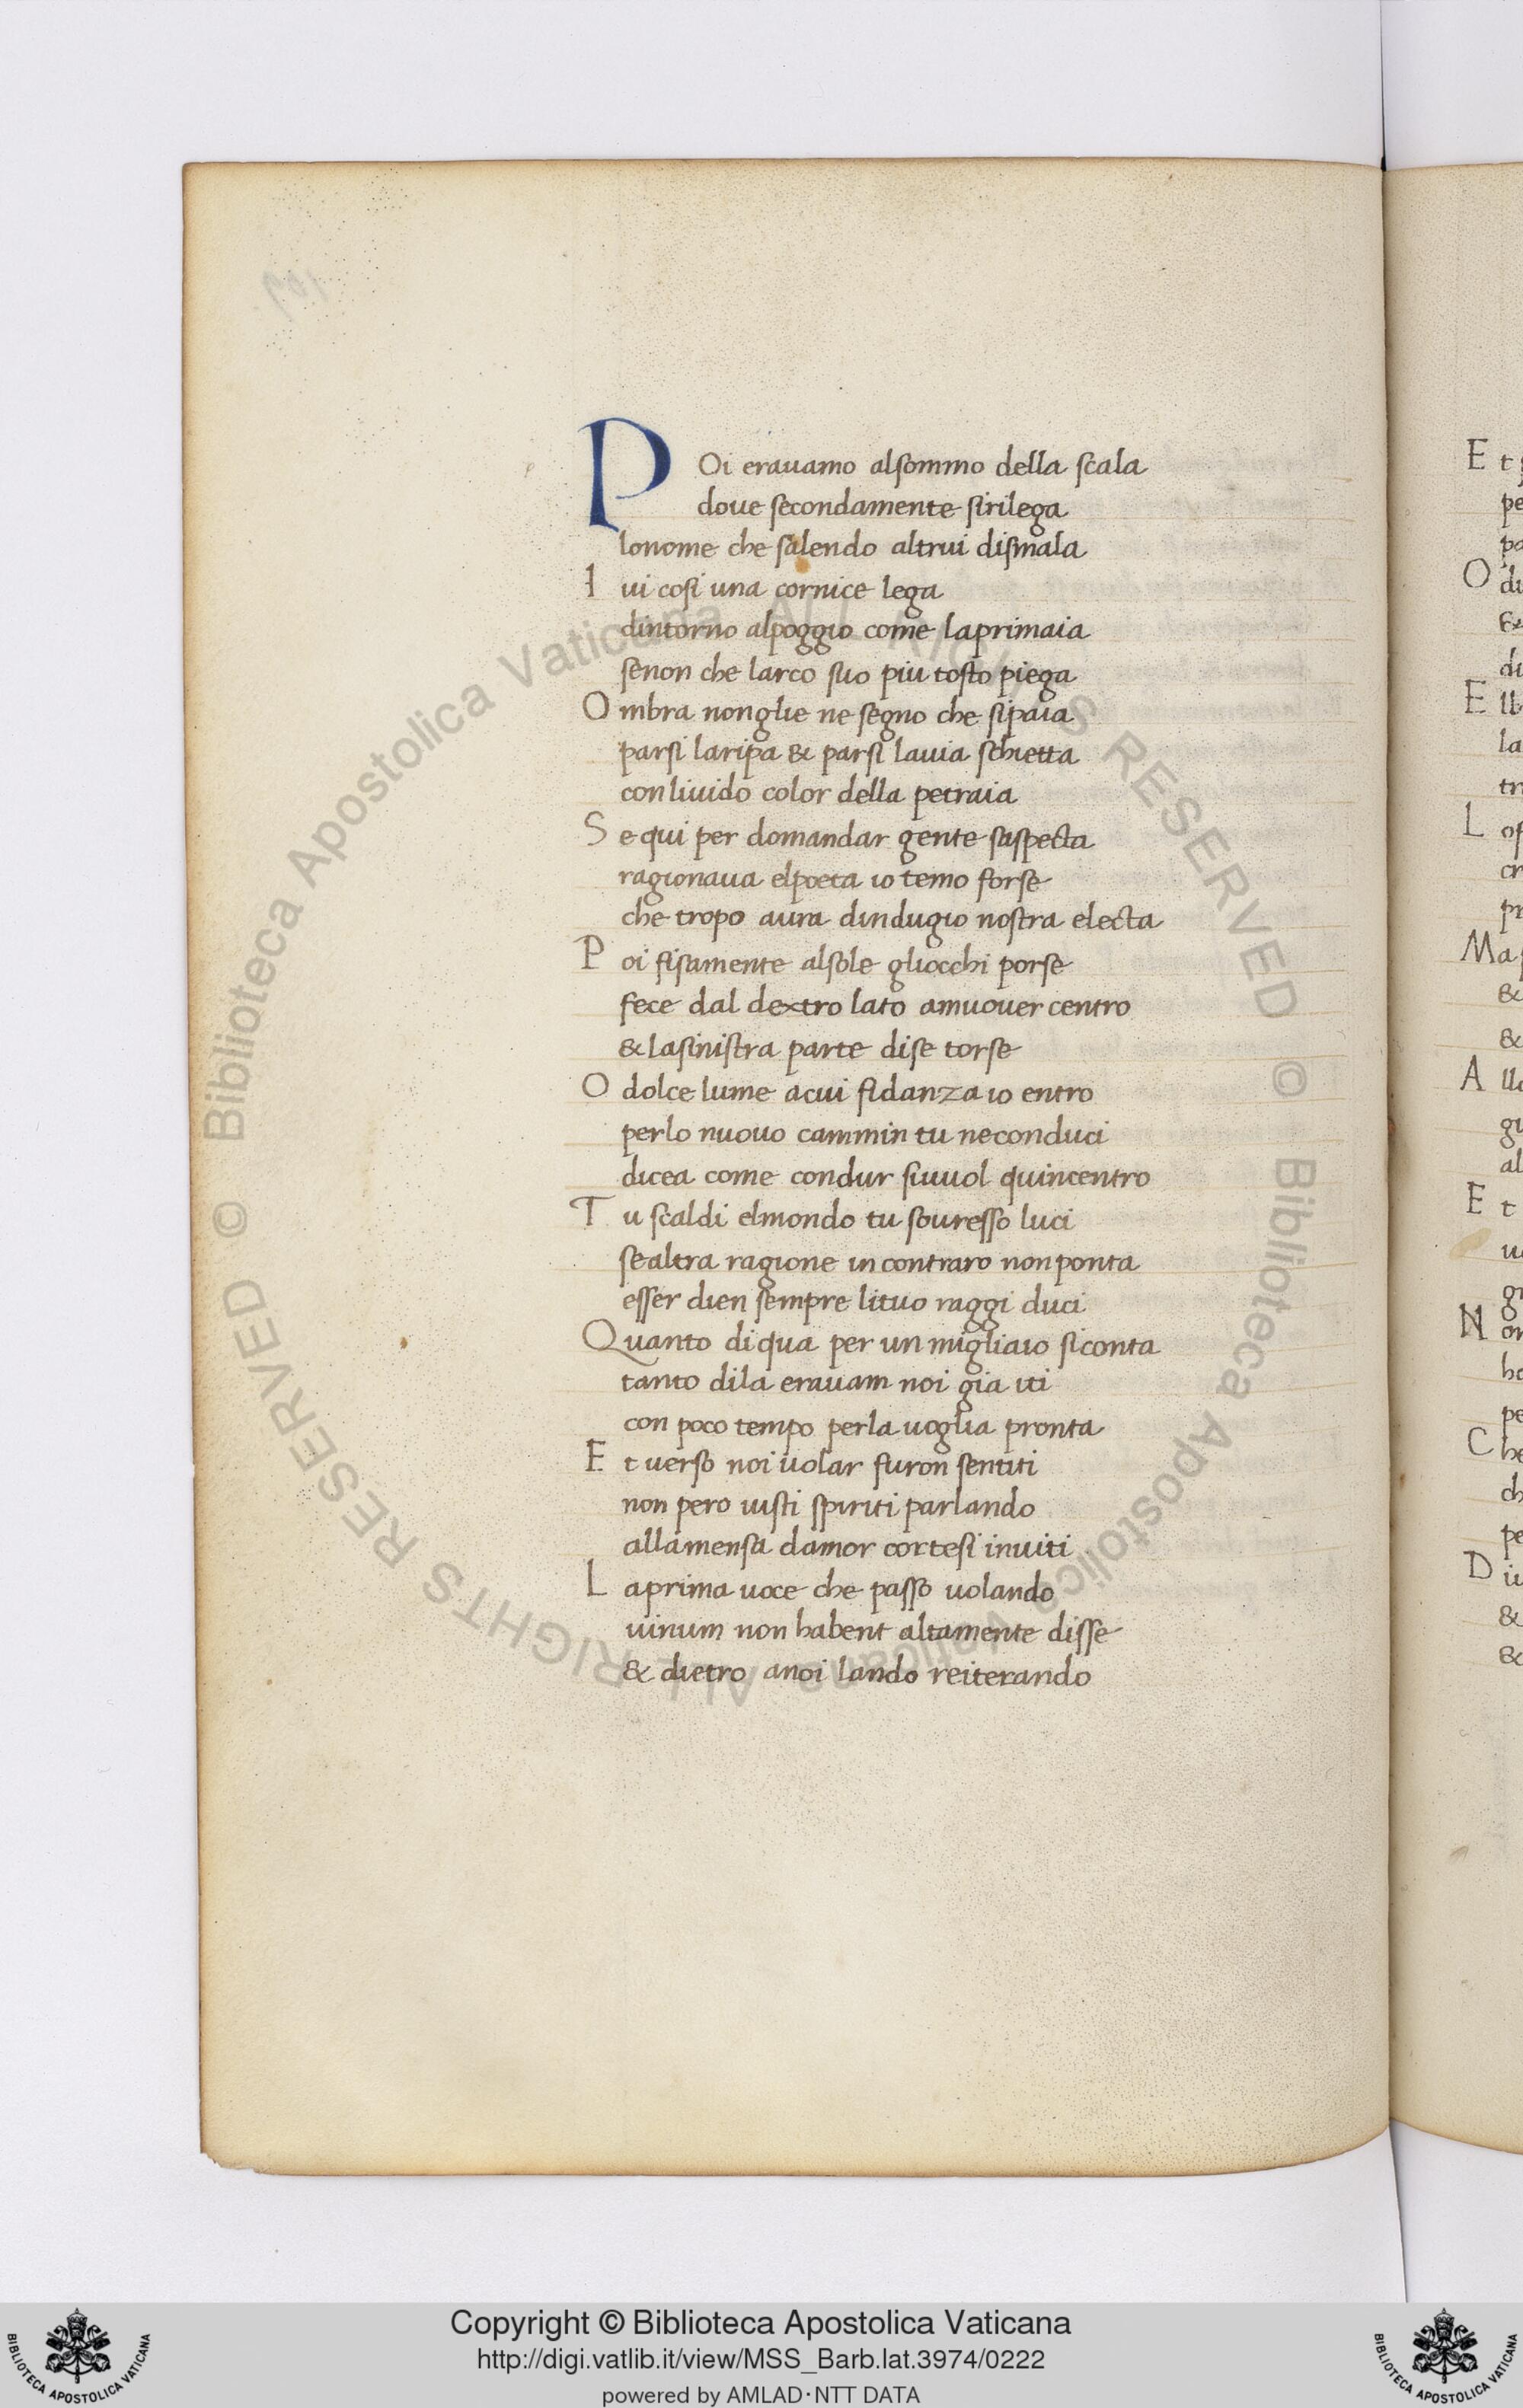 POi erauamo alsommo della scala
doue secondamente sirilega
lonome che salendo altrui dismala
I ui cosi una cornice lega
dintorno alpoggio come laprimaia
senon che larco suo piu tosto piega
O mbra nonglie ne segno che sipaia
parsi laripa & parsi lauia schietta
conliuido color della petraia
S e qui per domandar gente saspecta
ragionaua elpoeta io temo forse
che tropo aura dindugio nostra electa
P oi fisamente alsole gliocchi porse
fece dal dextro lato amuouer centro
& lasinistra parte dise torse
O dolce lume acui fidanza io entro
perlo nuouo cammin tu neconduci
dicea come condur siuuol quincentro
T u scaldi elmondo tu souresso luci
sealtra ragione incontraro nonponta
esser dien sempre lituo raggi duci
Quanto diqua per un migliaio siconta
tanto dila erauam noi gia iti
con poco tempo perla uoglia pronta
E t uerso noi uolar furon sentiti
non pero uisti spiriti parlando
allamensa damor cortesi inuiti
L aprima uoce che passo uolando
uinum non habent altamente disse
& dietro anoi lando reiterando
E t
pe
O di
di
E ll
la
tr
L of
cr
pr
Ma
&
&
A ll
al
E t
N on
pe
C he
ch
pe
D iu
&
&
© Biblioteca Apostolica Vaticana ALL RIGHTS RESERVED © Biblioteca Apostolica Vaticana ALL RIGHTS RESERVED
Copyright © Biblioteca Apostolica Vaticana
http://digi.vatlib.it/view/MSS_Barb.lat.3974/0222
powered by AMLAD·NTT DATA
BIBLIOTECA APOSTOLICA VATICANA
BIBLIOTECA APOSTOLICA VATICANA